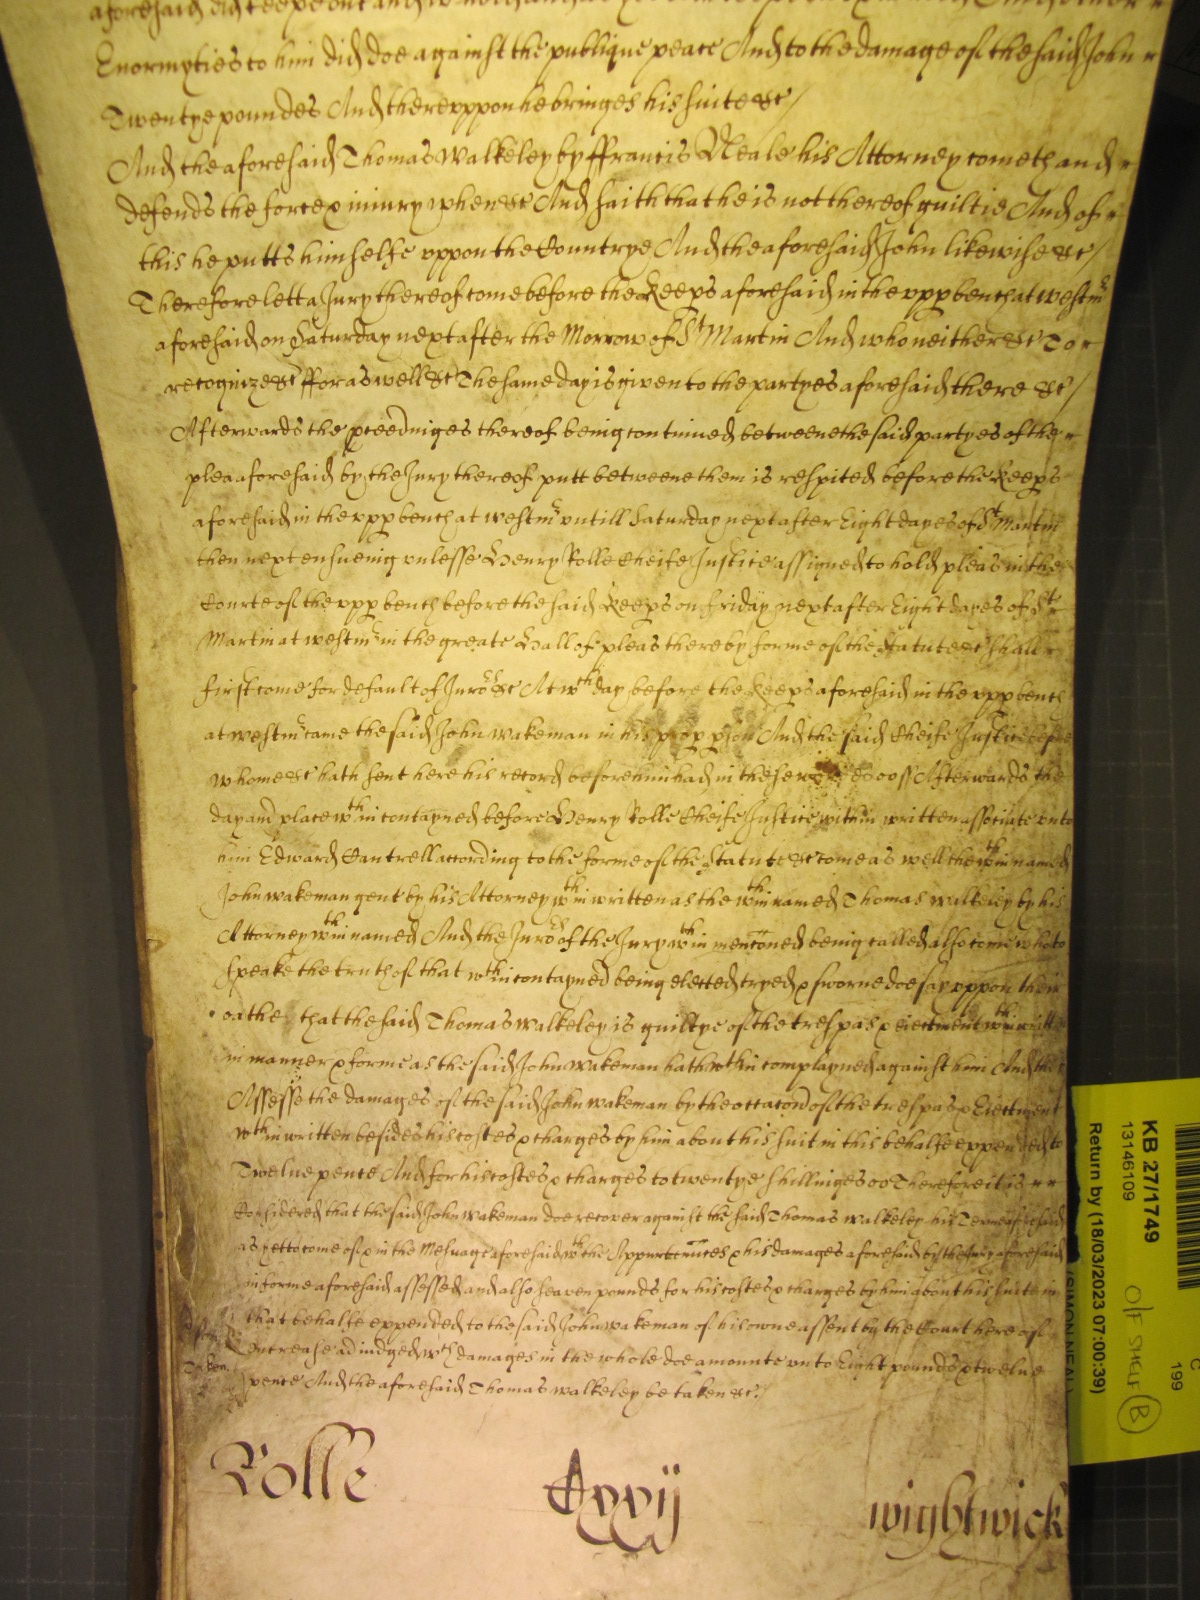 aforesaid did keepe out and
Enormyties to him did doe against the publique peace And to the damage of the said John
Twentye poundes And thereuppon he bringes his suite &c/
And the aforesaid Thomas Walkeley by ffrancis Neale his Attorney cometh and
defends the force & iniury when &c And saith that he is not thereof guiltie And of
this he putts himselfe uppon the Countrye And the aforesaid John likewise &c/
Therefore lett a Jury thereof come before the Keeps aforesaid in the upp bench at westmr
aforesaid on Saturday next after the Morrow of St Martin And who neither &c To
recognize &c ffor aswell &c The same day is given to the partyes aforesaid there &c/
Afterwards the pceedinges thereof being continued betweene the said partyes of the
plea aforesaid by the Jury thereof putt betweene them is respited before the Keeps
aforesaid in the upp bench at westmr untill Saturday next after Eight dayes of St Martin
then next ensueing unlesse Henry Rolle Cheife Justice assigned to hold pleas in the
Courte of the upp bench before the said Keeps on Friday next after Eight dayes of St
Martin at westmr in the greate Hall of pleas there by forme of the Statute &c shall
first come for default of Jurors &c At wch day before the Keeps aforesaid in the upp bench
at westmr came the said John Wakeman in his pper pson And the said Cheife Justice before
whome &c hath sent here his record before him had in these words ss Afterwards the
day and place wthin contayned before Henry Rolle Cheife Justice within written associate unto
him Edward Cantrell according to the forme of the Statute &c come as well the wthin named
John Wakeman gent by his Attorney wthin written as the wthin named Thomas Walkeley by his
Attorney wthin named And the Jurors of the Jury wthin menconed being called also come who to
speake the truth of that wthin contayned being elected tryed & sworne doe say uppon their
oathe that the said Thomas Walkeley is guiltye of the trespas & eiectment wthin written
in manner & forme as the said John Wakeman hath wthin complayned against him And they
Assesse the damages of the said John Wakeman by the occacon of the trespas & Eiectment
wthin written besides his costes & charges by him about his suit in this behalfe expended to
Twelue pence And for his costes & charges to twentye shillinges Therefore it is
Considered that the said John Wakeman doe recover against the said Thomas Walkeley his Terme aforesaid
as yett to come of & in the Messuage aforesaid wth the Appurtennces & his damages aforesaid by the Jury aforesaid
in forme aforesaid assessed and also seaven pounds for his costes & charges by him about his suite in
that behalfe expended to the said John Wakeman of his owne assent by the Court here of
Encrease adiudged wch damages in the whole doe amounte unto Eight pounds & twelue
Taken
pence And the aforesaid Thomas Walkeley be taken &c/
Rolle
wightwick
KB 27/1749
13146109
Return by (18/03/2023 07:00:39)
O/F SHELF B
199